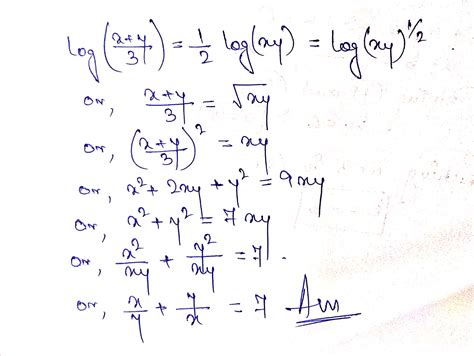 log((x+y)/3) = 1/2 log(xy) = log(xy)^1/2
or, (x+y)/3 = √xy
or, ((x+y)/3)² = xy
or, x² + 2xy + y² = 9xy
or, x² + y² = 7xy
or, x²/xy + y²/xy = 7.
or, x/y + y/x = 7 Ans